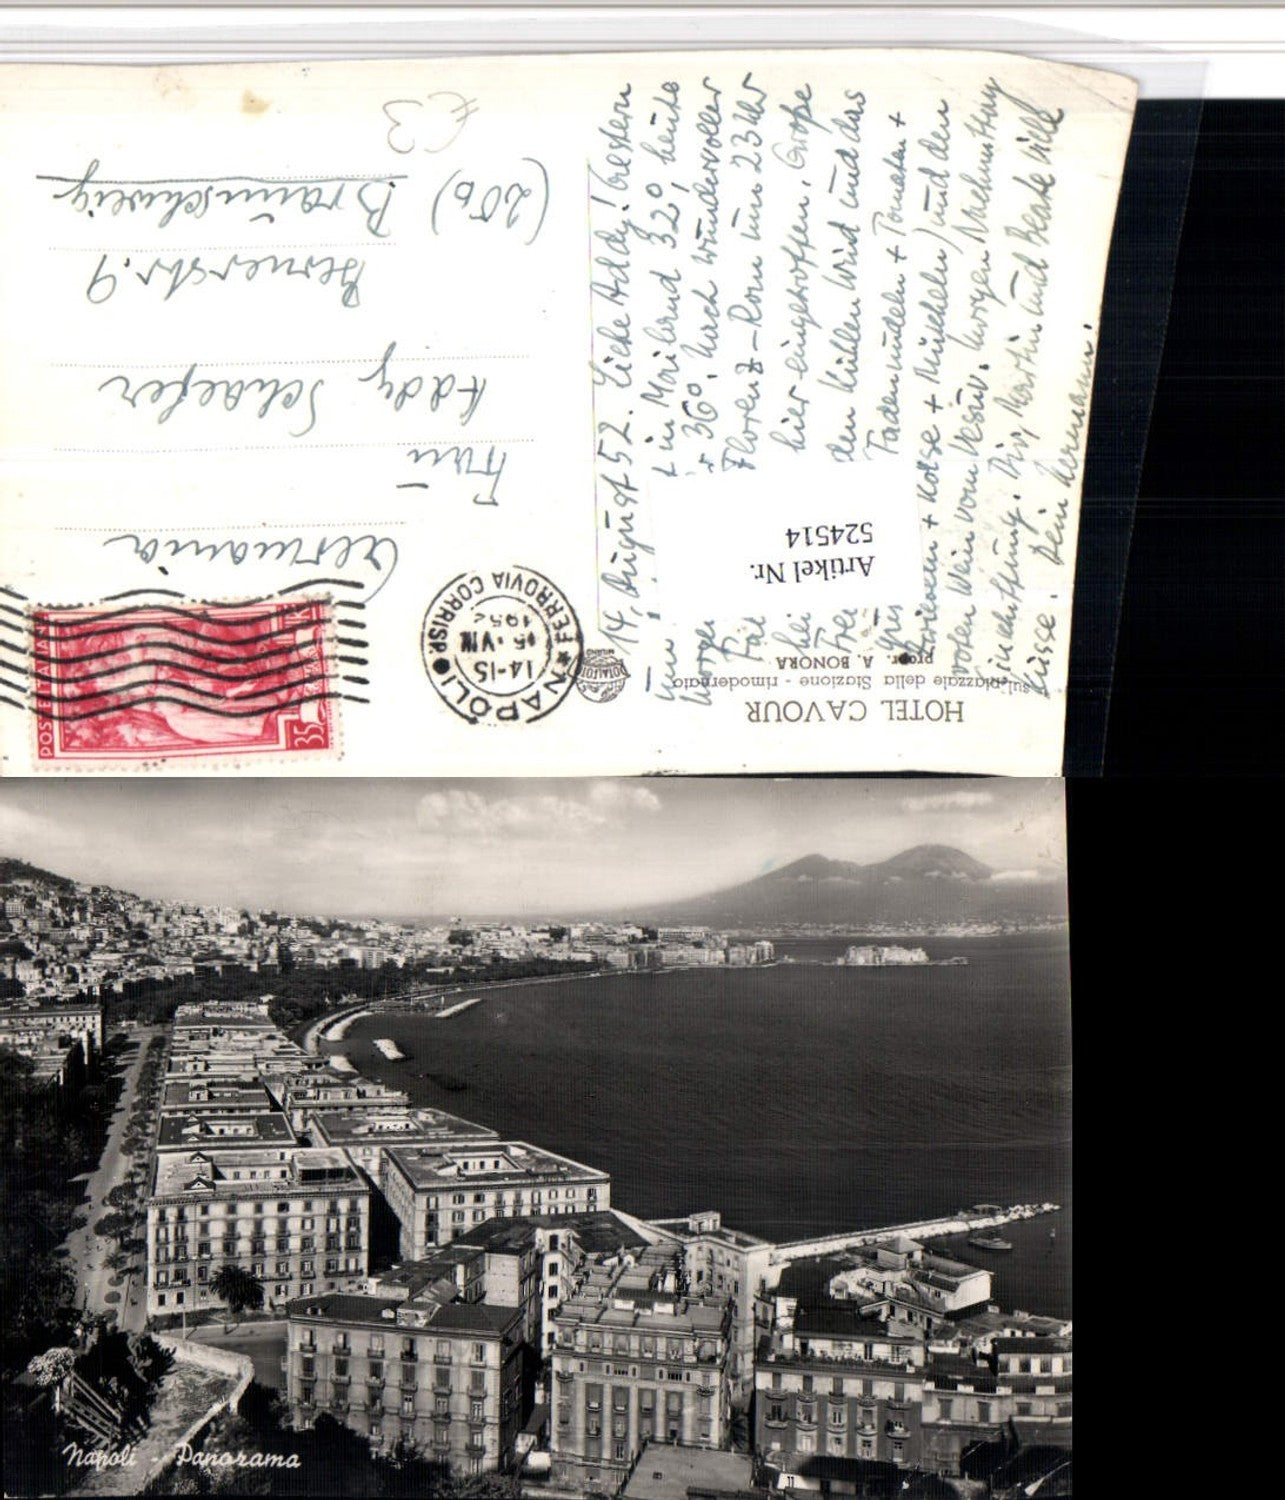 €3
Germania
Frau
Addy Schaefer
Bernerstr. 9
(20b) Braunschweig
14. August 52. Liebe Addy! Gestern
in Mailand 32°, heute
36°. Nach wundervoller
Florenz - Rom um 23 Uhr
hier eingetroffen. Große
den kühlen Wind und das
Fadennudeln + Tomaten +
Oliven + Käse + Muscheln) und den
roten Wein vom Vesuv. Morgen Nachmittag
Einschiffung. Dir, Martin und Beate viele
Küsse. Dein Hermann.
Artikel Nr.
524514
HOTEL CAVOUR
sul piazzale della Stazione - rimodernato
propr. A. BONORA
ROTALFOTO
MILANO
NAPOLI FERROVIA CORRISP.
14-15
15.VIII
1952
POSTE ITALIANE
35
Napoli - Panorama